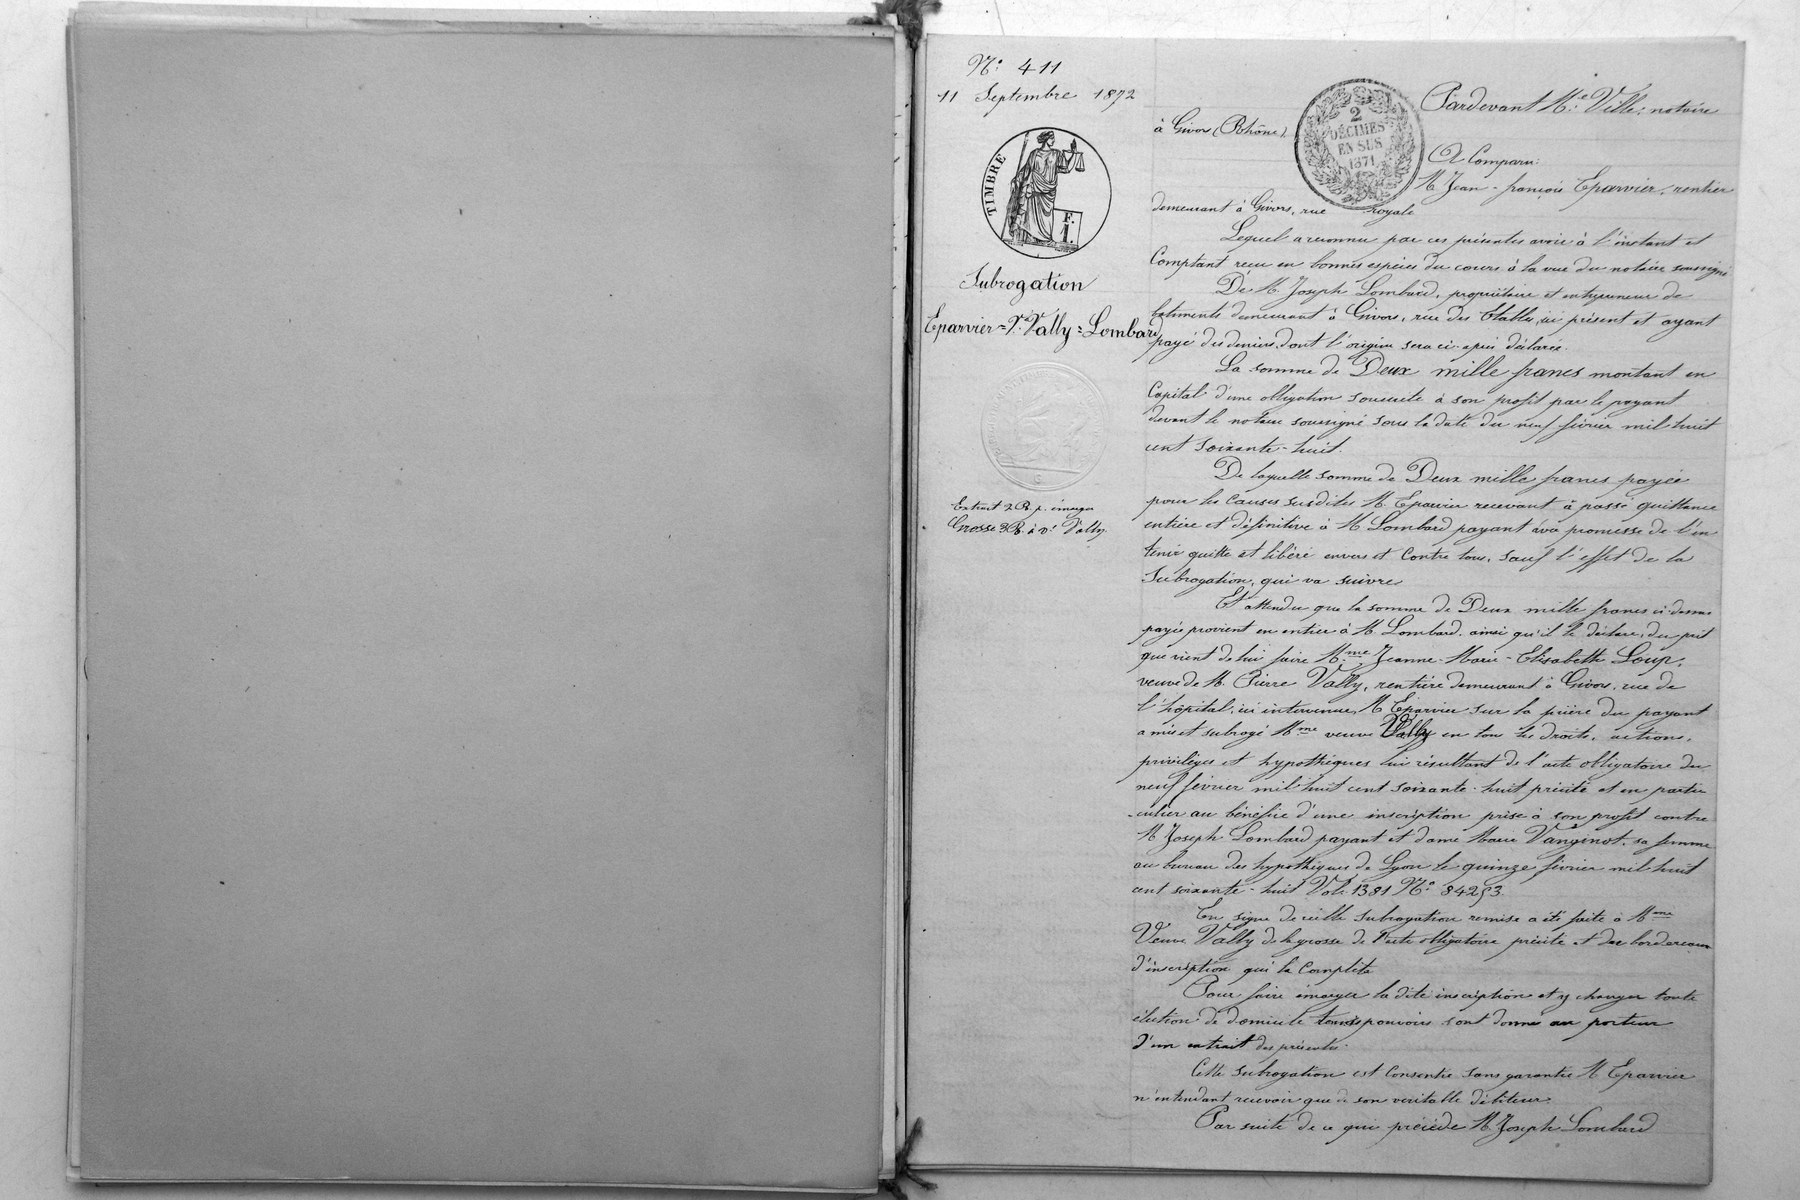 N° 411
11 Septembre 1872
TIMBRE
F.
I.
Subrogation
Eparvier = Vve Vally = Lombard
Extrait 2 R. p. émarger
Grosse 3 R. à Vve Vally
2
DÉCIMES
EN SUS
1871
Pardevant Me Ville, notaire
à Givors (Rhône)
A Comparu:
M. Jean-françois Eparvier, rentier
demeurant à Givors, rue royale
Lequel a reconnu par ces présentes avoir à l'instant et
Comptant reçu en bonnes espèces du cours à la vue du notaire soussigné
De M. Joseph Lombard, propriétaire et entrepreneur de
batiments demeurant à Givors, rue des , ici présent et ayant
payé des deniers dont l'origine sera ci-après déclarée.
La somme de Deux mille francs montant en
Capital d'une obligation souscrite à son profit par le payant
devant le notaire soussigné sous la date du neuf février mil huit
cent soixante-huit.
De laquelle somme de Deux mille francs payée
pour les causes susdites M. Eparvier recevant à passé quittance
entière et définitive à M. Lombard payant avec promesse de l'en
tenir quitte et libéré envers et Contre tous, sauf l'effet de la
Subrogation, qui va suivre
Et attendu que la somme de Deux mille francs ci-dessus
payée provient en entier à M. Lombard, ainsi qu'il le déclare, du prêt
que vient de lui faire Mme Jeanne-Marie-Elisabeth Loup,
veuve de M. Pierre Vally, rentière demeurant à Givors, rue de
l'hôpital, ici intervenue, M Eparvier sur la prière du payant
a mis et subrogé Mme veuve Vally en tous les droits, actions,
privilèges et hypothèques lui résultant de l'acte obligatoire du
neuf février mil huit cent soixante-huit précité et en parti-
-culier au bénéfice d'une inscription prise à son profit contre
M Joseph Lombard payant et dame Marie Vanginot, sa femme
au bureau des hypothèques de Lyon le quinze février mil huit
cent soixante-huit Vol. 1381 N° 84253
En signe de cette subrogation remise a été faite à Mme
Veuve Vally de la grosse de l'acte obligatoire précité et du bordereau
d'inscription qui la Complète
Pour faire émarger la dite inscription et y changer toute
élection de domicile tous pouvoirs sont donnés au porteur
d'un extrait des présentes.
Cette subrogation est Consentie sans garantie M Eparvier
n'entendant recevoir que de son véritable débiteur.
Par suite de ce qui précède M. Joseph Lombard